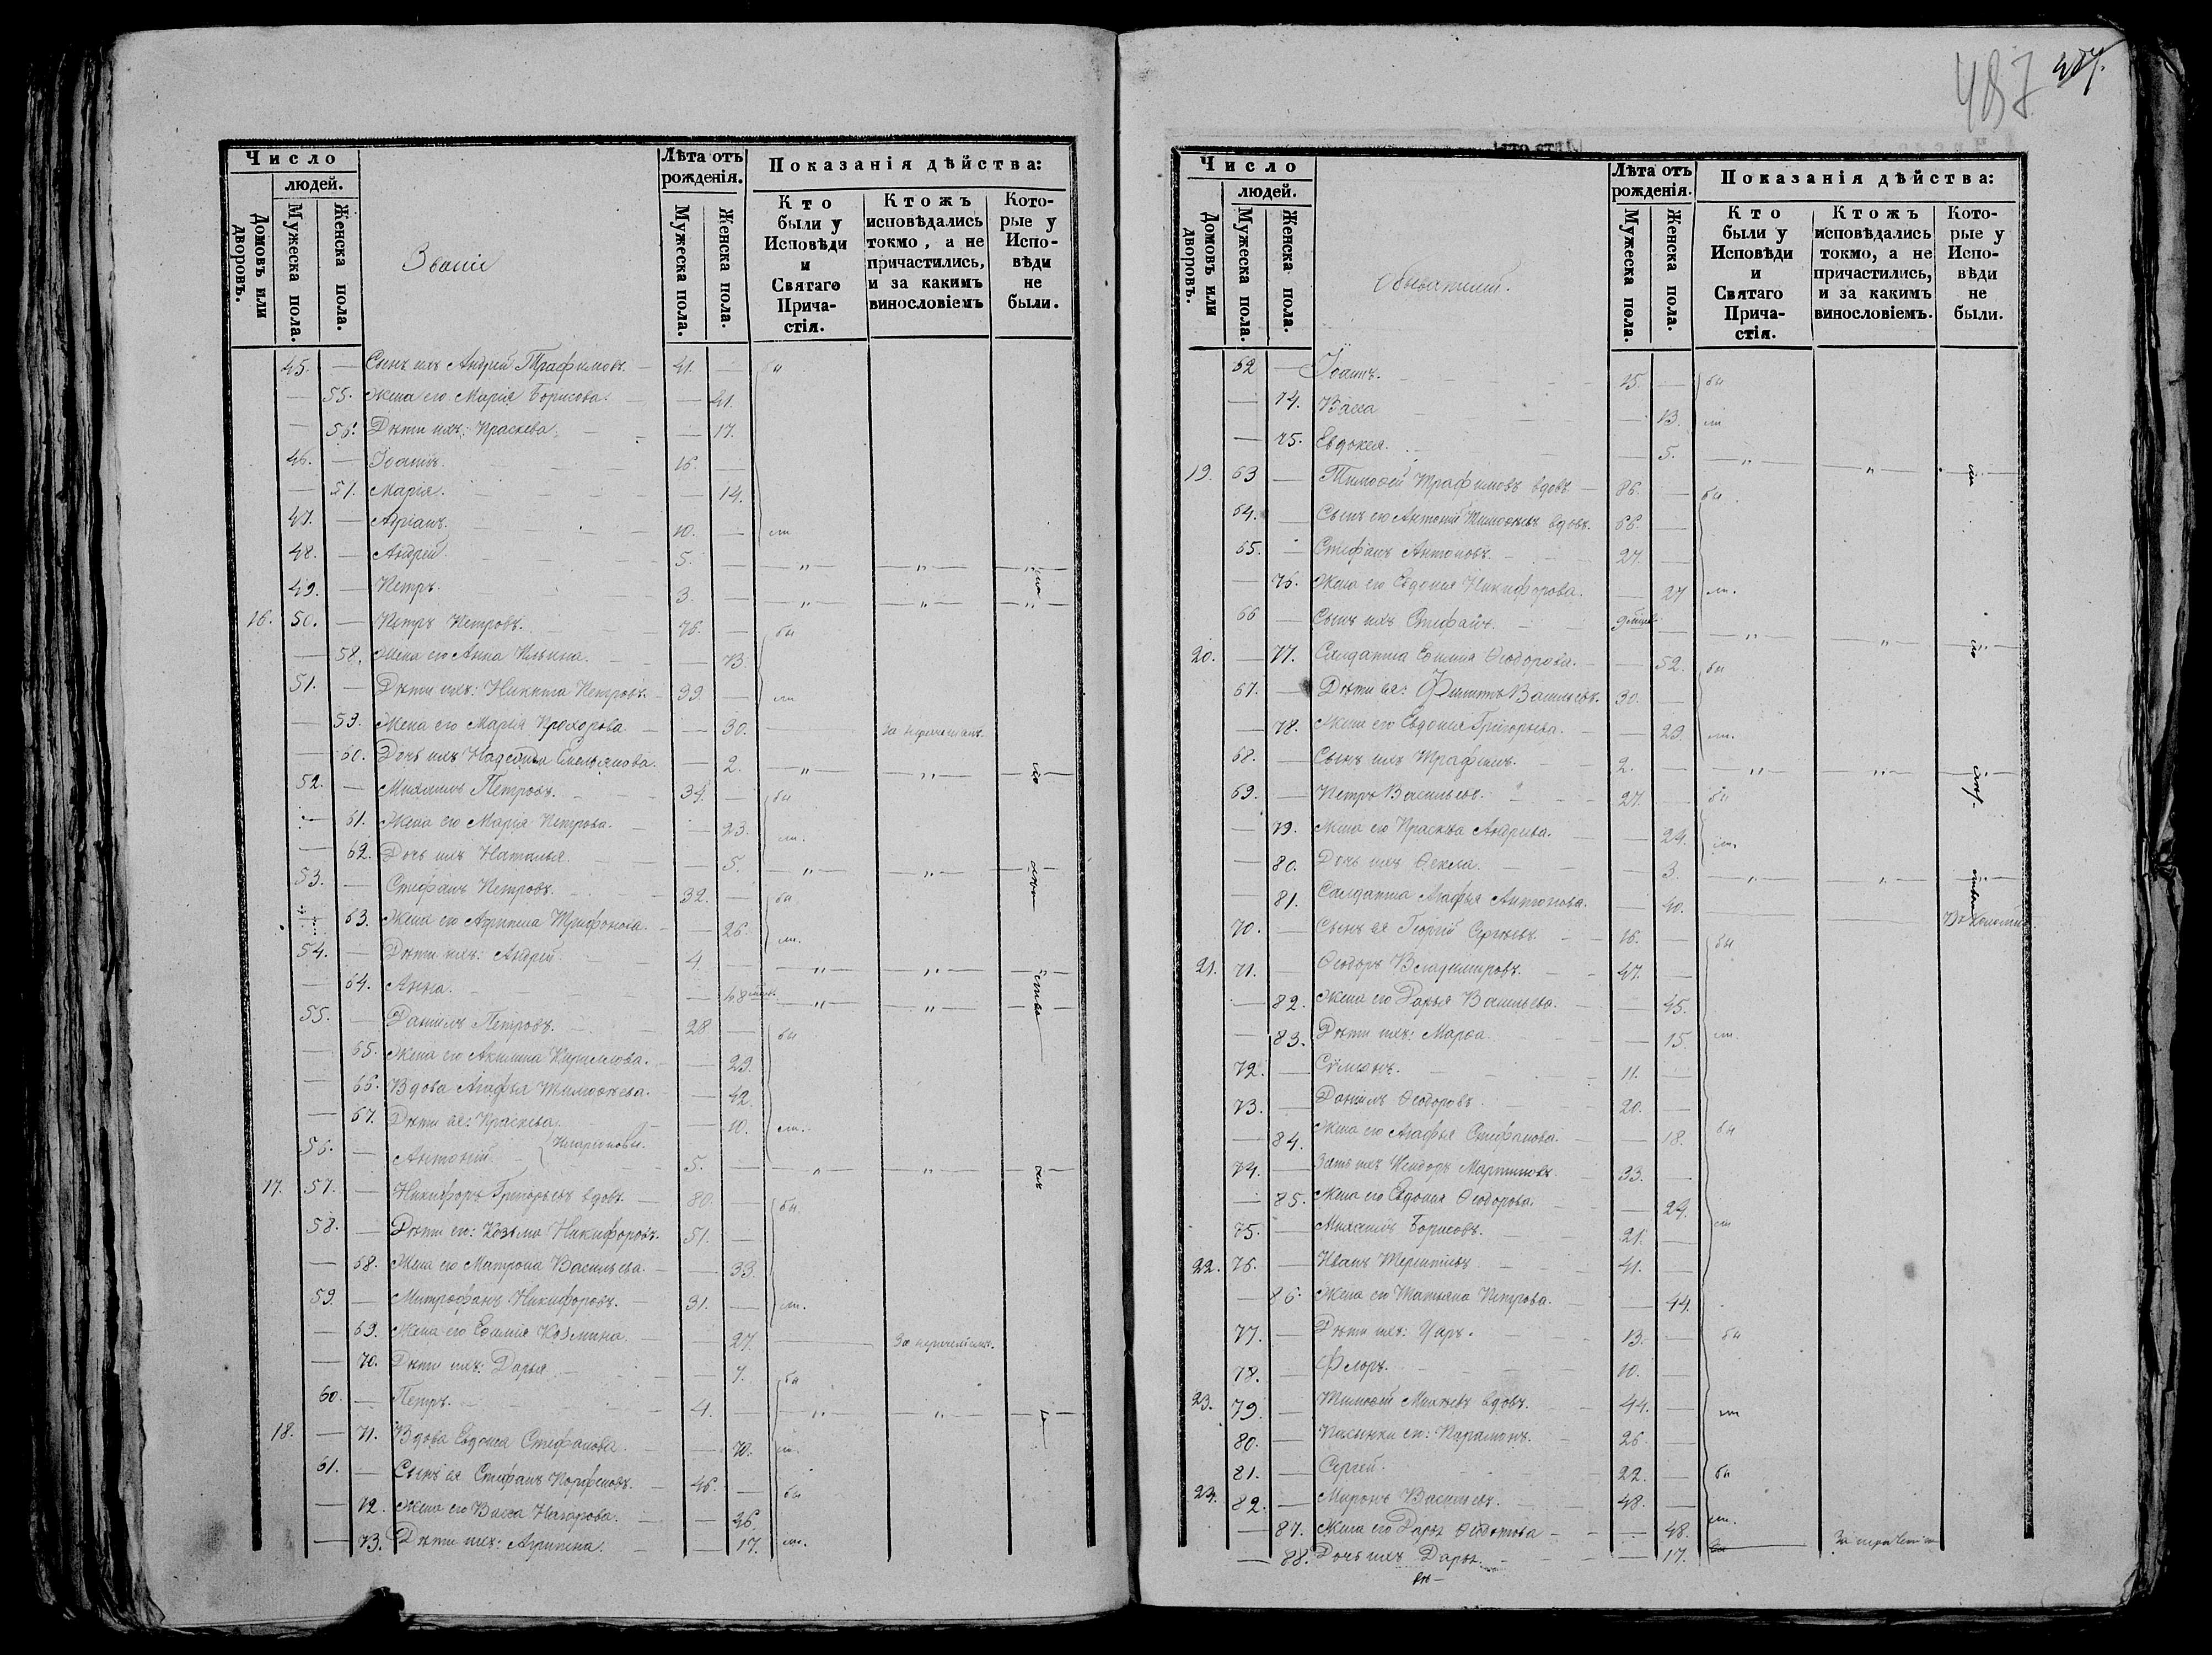 487 487.
Число
людей.
Домовъ или дворовъ.
Мужеска пола.
Женска пола.
Званіе
Лѣта отъ рожденія.
Мужеска пола.
Женска пола.
Показанія дѣйства:
Кто были у Исповѣди и Святаго Прича-стія.
Ктожъ исповѣдались токмо, а не причастились, и за какимъ винословіемъ
Кото-рые у Испо-вѣди не были.
45. — Сынъ ихъ Андрей Трафимовъ. — 41. — бы
— 55. Жена его Марія Борисова. — — 41.
— 56. Дѣти ихъ: Праскева. — — 17.
46. — Іоаннъ. — 16. —
— 57. Марія. — — 14.
47. — Адріанъ. — 10. — ли
48. — Андрей. — 5. — „ „ „
49. — Петръ. — 3. — „ „ „
16. 50. — Петръ Петровъ. — 76. — бы
— 58. Жена его Анна Ильина. — — 73
51. — Дѣти ихъ: Никита Петровъ. — 39 — ли
— 59. Жена его Марія Прохорова — — 30. —
— 60. Дочь ихъ Надежда Емельянова. — — 2. „ „
52. — Михаилъ Петровъ. — 34. — бы
— 61. Жена его Марія Петрова. — — 23. ли.
— 62. Дочь ихъ Наталья. — — 5. „ „
53. — Стефанъ Петровъ. — 32. — бы
— 63. Жена его Агрипена Трифонова. — — 26. ли.
54. — Дѣти ихъ: Андрей — 4. — „ „
— 64. Анна. — — „ „
55. — Даниилъ Петровъ. — 28 — бы
— 65. Жена его Акилина Кирилова. — — 29.
— 66. Вдова Агафья Тимоѳѣева. — — 42.
— 67. Дѣти ея: Праскева — — 10. ли.
56. — Антоній. — Иларіоновы. 5. — „ „
17. 57. — Никифоръ Григорьевъ вдовъ. — 80. — бы.
58. — Дѣти его: Козьма Никифоровъ. 51. —
— 68. Жена его Матрона Васильева. — — 33.
59. — Митрофанъ Никифоровъ. — 31. — ли.
— 69. Жена его Евфимія Козмина. — — 27. —
— 70. Дѣти ихъ: Дарья. — — 7. бы
60. — Петръ. — 4. — „ „
18. — 71. Вдова Евдокія Стефанова. — — 70. ли.
61. — Сынъ ея Стефанъ Порфеновъ. — 46. — бы
— 72. Жена его Васса Назарова. — — 46.
— 73. Дѣти ихъ: Агрипена. — — 17. ли.
Число
людей.
Домовъ или дворовъ.
Мужеска пола.
Женска пола.
обывателей.
Лѣта отъ рожденія.
Мужеска пола.
Женска пола.
Показанія дѣйства:
Кто были у Исповѣди и Святаго Прича-стія.
Ктожъ исповѣдались токмо, а не причастились, и за какимъ винословіемъ.
Кото-рые у Испо-вѣди не были.
62 — Іоаннъ. — 15. — бы
— 74. Васса — — 13. ли
— 75. Евдокея. — — 5. „ „
19. 63 — Тимоѳей Трафимовъ вдовъ — 86. — бы.
64. — Сынъ его Антоній Тимоѳѣевъ вдовъ. 66. —
65. — Стефанъ Антоновъ. — 27. —
— 76. Жена его Евдокія Никифорова. — 27 ли.
66 — Сынъ ихъ Стефанъ. — „ „
20. — 77. Салдатка Евфимія Ѳеодорова. — — 52. бы
67. — Дѣти ея: Филиппъ Васильевъ. 30. —
— 78. Жена его Евдокія Григорьева. — — 29. ли.
68. — Сынъ ихъ Трафимъ. — 2. — „ „
69. — Петръ Васильевъ. — 27. — бы
— 79. Жена его Праскева Андреева. — — 24. ли.
— 80. Дочь ихъ Ѳекла. — — 3. „ „
— 81. Салдатка Агафья Антонова. — — 40. —
70. — Сынъ ея Георгій Сергѣевъ. — 16. — бы
21. 71. — Ѳеодоръ Владимировъ. — 47. —
— 82. Жена его Дарья Васильева. — — 45.
— 83. Дѣти ихъ: Марѳа. — — 15. ли
72. — Сѵмеонъ. — 11. —
73. — Даниилъ Ѳеодоровъ. — 20. —
— 84. Жена его Агафья Стефанова. — — 18. бы
74. — Зять ихъ Исидоръ Мартиновъ. — 33. —
— 85. Жена его Евдокія Ѳеодорова. — — 24.
75. — Михаилъ Борисовъ. — 21. — ли
22. 76. — Иванъ Терентіевъ — 41. —
— 86. Жена его Татьяна Петрова. — — 44.
77. — Дѣти ихъ: Уаръ. — 13. — бы
78. — Флоръ. — 10. —
23. 79. — Тимоѳей Михѣевъ вдовъ. — 44. — ли
80. — Пасынки его: Парамонъ. — 26. —
81. — Сергей. — 22. — бы
24. 82. — Миронъ Васильевъ. — 48. —
— 87. Жена его Дарья Ѳедотова — — 48. ли.
— 88. Дочь ихъ Дарья. — — 17.